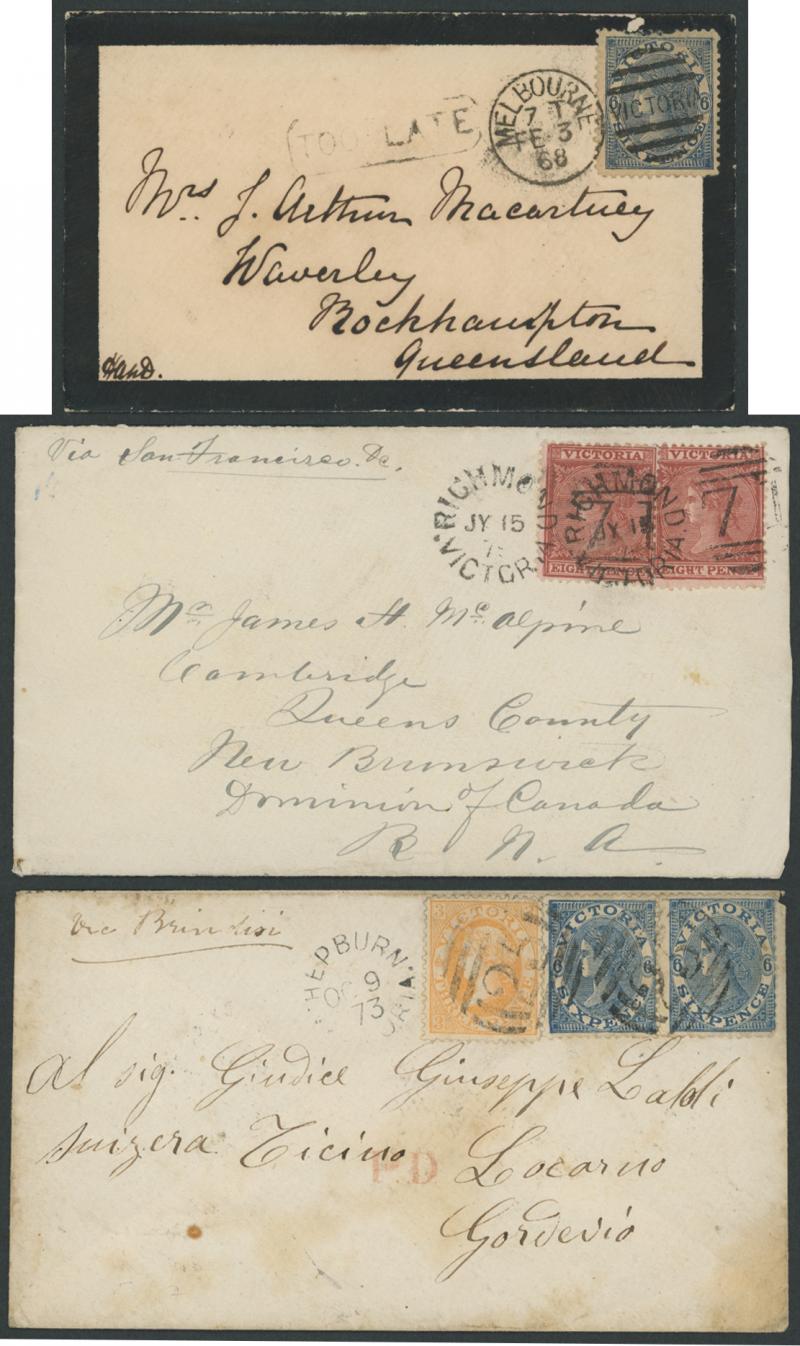 (TOO LATE)
MELBOURNE
7 T
FE 3
68
VICTORIA
6 6
SIX PENCE
VICTORIA
Mrs J. Arthur Macartney
Waverley
Rockhampton
Queensland
Via San Francisco
RICHMOND
JY 15
7
VICTORIA
VICTORIA
EIGHT PENCE
RICHMOND
JY 15
VICTORIA
VICTORIA
EIGHT PENCE
7
Mr James H. McAlpine
Cambridge
Queens County
New Brunswick
Dominion of Canada
B. N. A.
Via Brindisi
HEPBURN
OC 9
73
VICTORIA
3 3
VICTORIA
6 6
SIX PENCE
VICTORIA
6 6
SIX PENCE
Al sig. Giudice Giuseppe
Suizera Ticino Locarno
PD
Gordevio